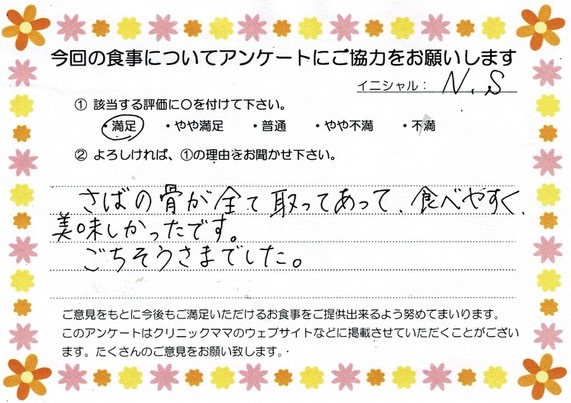 今回の食事についてアンケートにご協力をお願いします
イニシャル： N.S
① 該当する評価に〇を付けて下さい。
・満足 ・やや満足 ・普通 ・やや不満 ・不満
② よろしければ、①の理由をお聞かせ下さい。
さばの骨が全て取ってあって、食べやすく、
美味しかったです。
ごちそうさまでした。
ご意見をもとに今後もご満足いただけるお食事をご提供出来るよう努めてまいります。
このアンケートはクリニックママのウェブサイトなどに掲載させていただくことがござい
ます。たくさんのご意見をお願い致します。